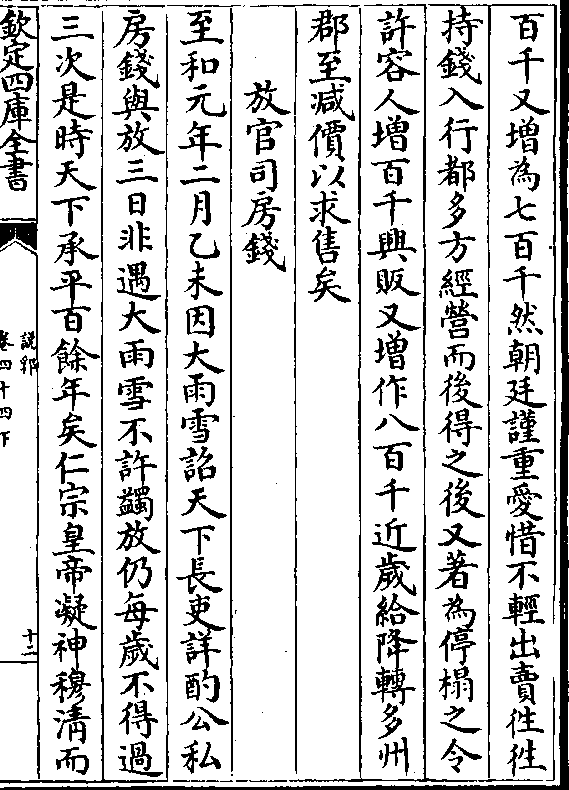 百千又增為七百千然朝廷謹重愛惜不輕出賣徃徃
持錢入行都多方經營而後得之後又著為停榻之令
許容人增百千興販又增作八百千近歲給降轉多州
郡至减價以求售矣
放官司房錢
至和元年二月乙未因大雨雪詔天下長吏詳酌公私
房錢與放三日非遇大雨雪不許蠲放仍每歲不得過
三次是時天下承平百餘年矣仁宗皇帝凝神穆清而
欽定四庫全書
說郛
卷四十四下
十二